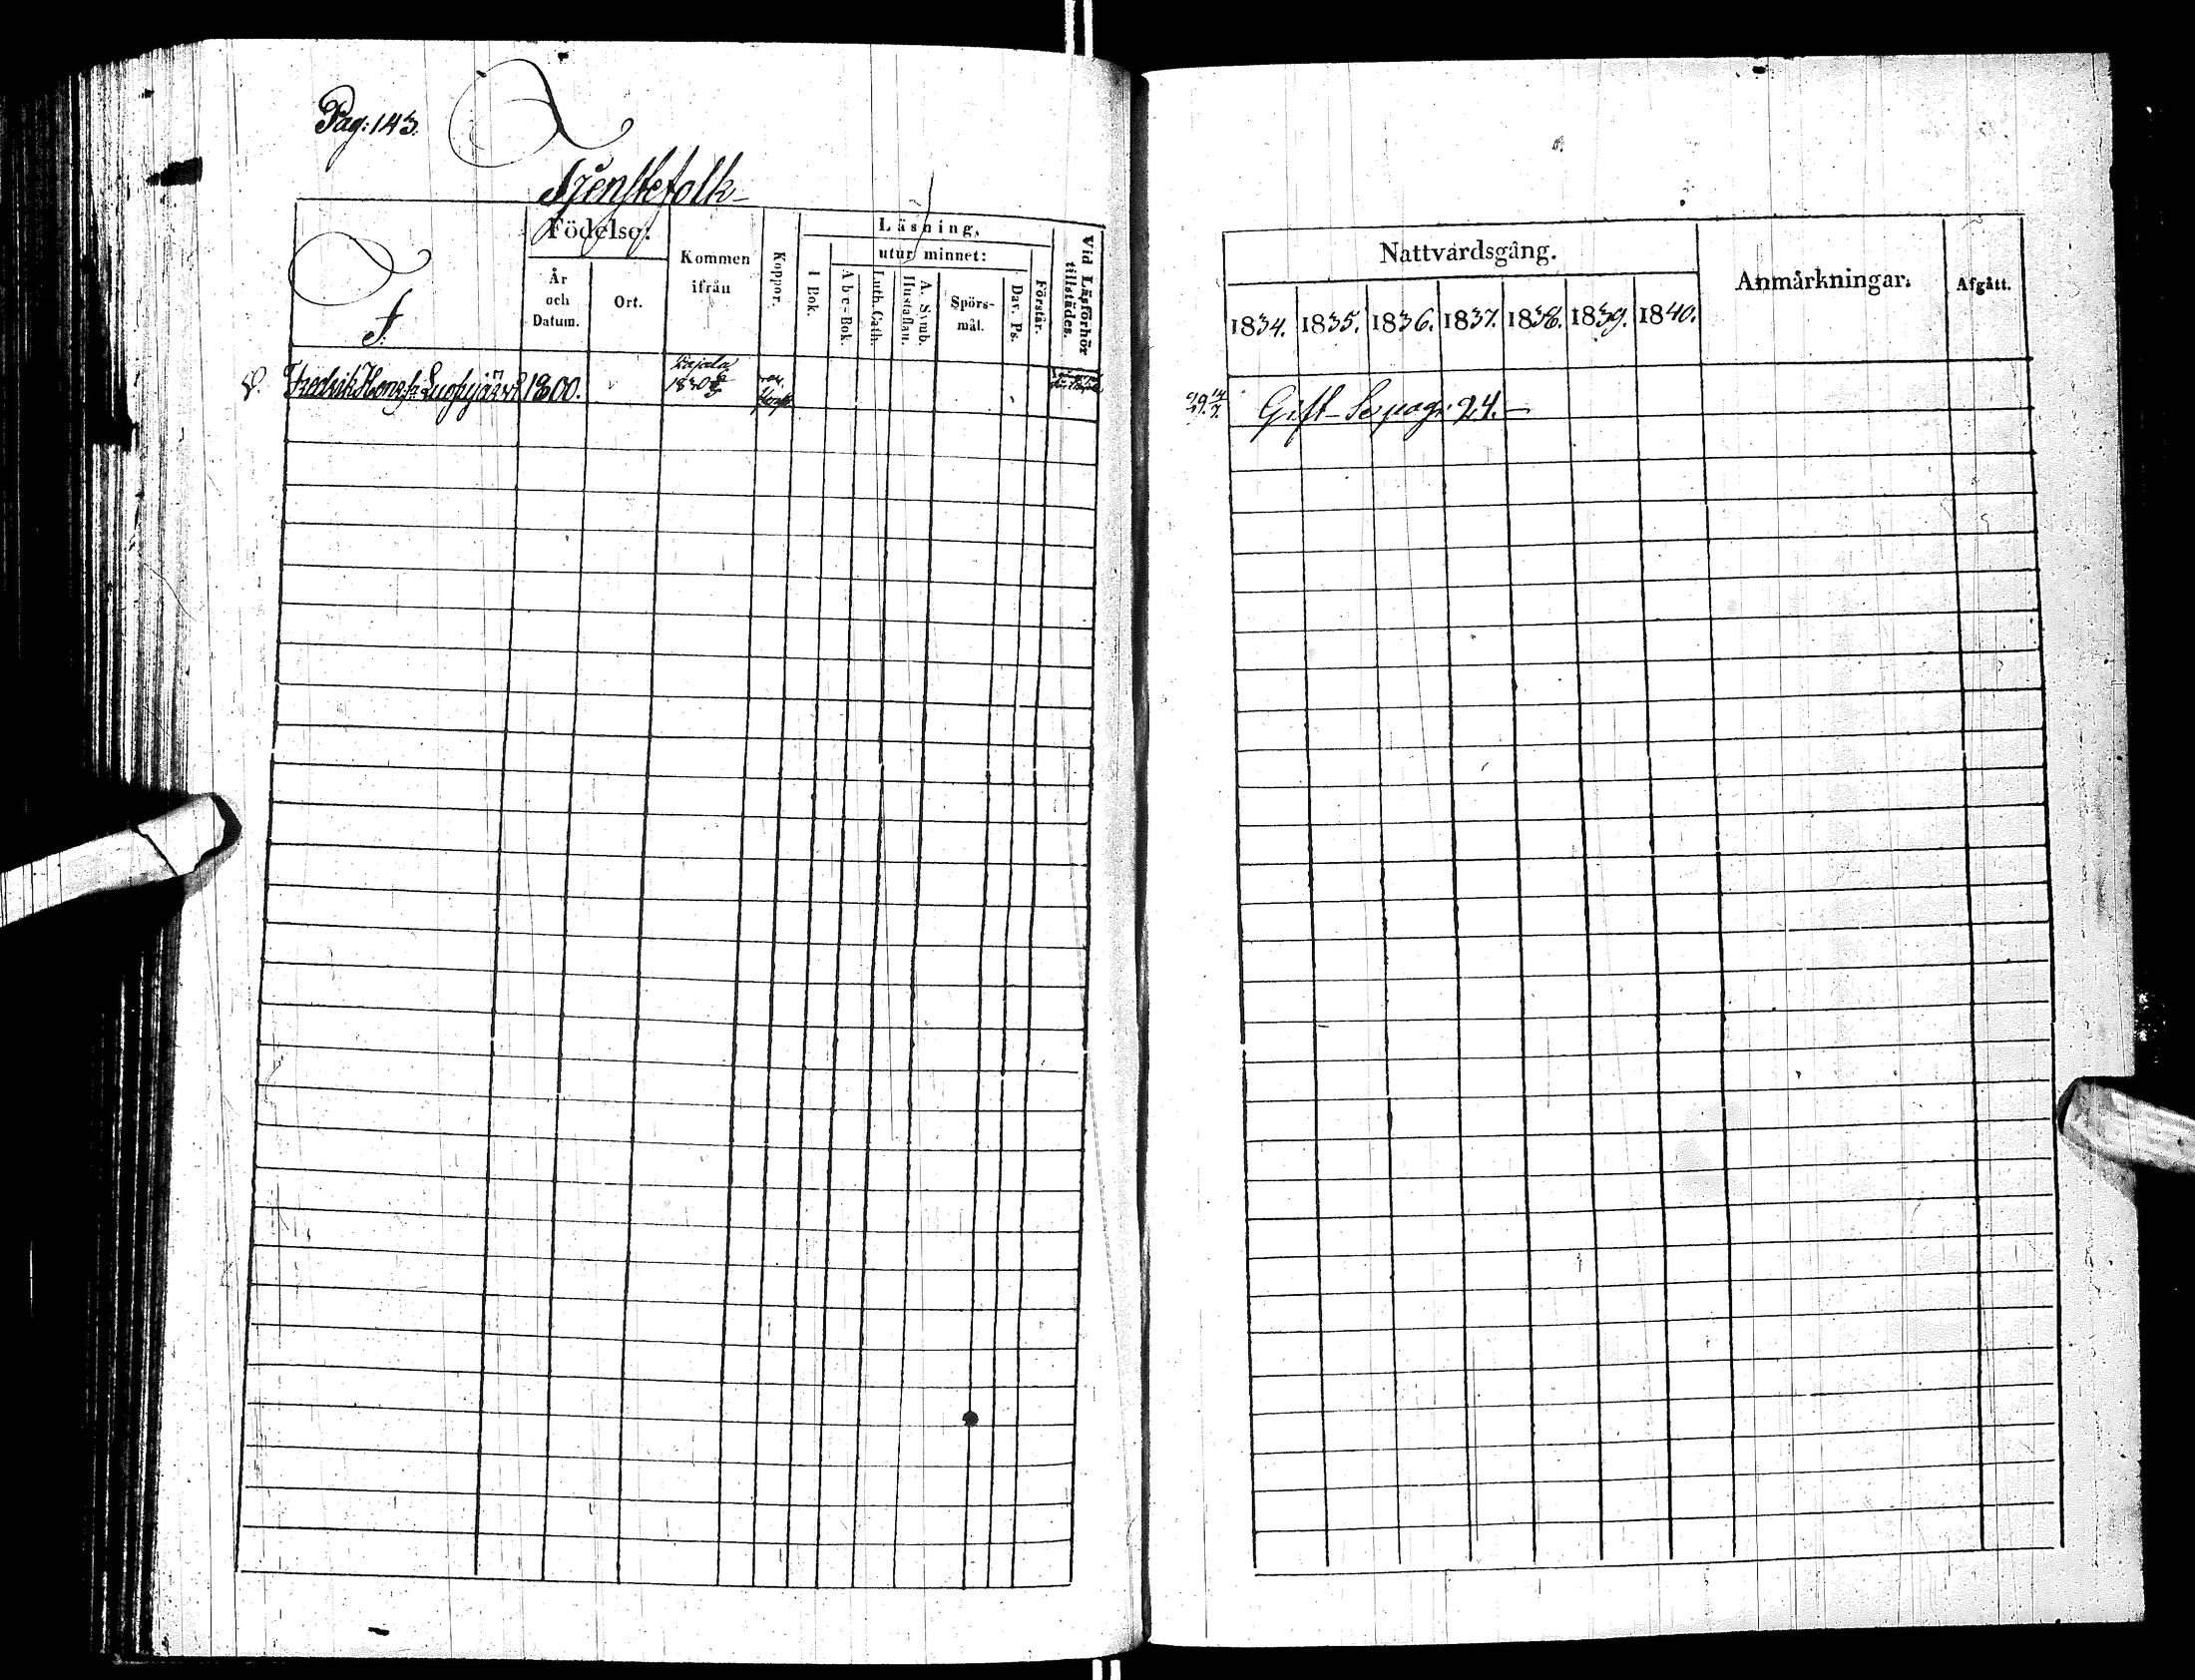 Pag: 143.
Tjenstefolk
Födelse:
År och Datum.
Ort.
Kommen ifrån
Koppor.
Läsning,
I Bok.
utur minnet:
A b c-Bok.
Luth. Cath.
Hustaflan.
A. Symb.
Spörs-mål.
Dav. Ps.
Förstår.
Vid Läsförhör tillstädes.
F.
Fredrik 1800.
Pajala
1830
Nattvardsgång.
1834. 1835. 1836. 1837. 1838. 1839. 1840.
Anmärkningar.
Afgått.
Gift - Se pag: 24. -